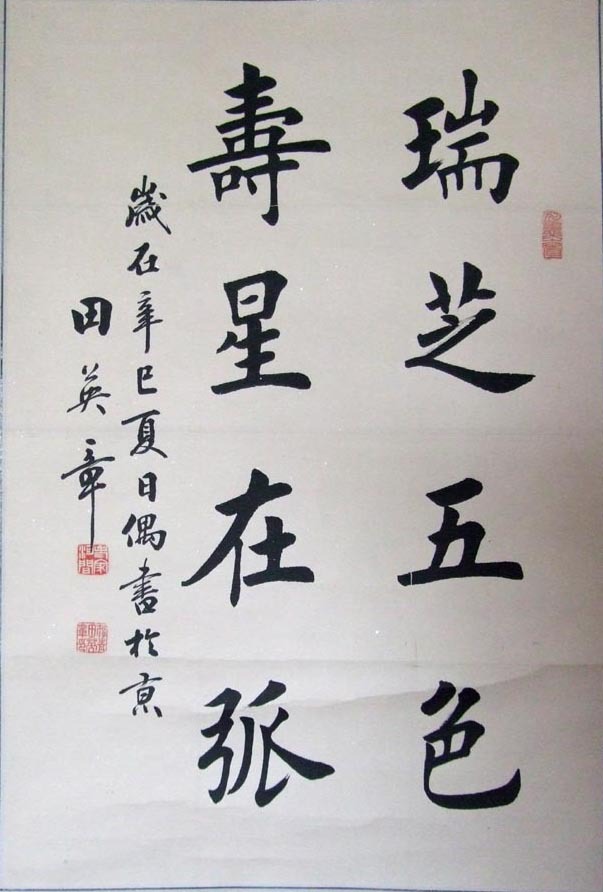 瑞芝五色
壽星在弧
歲在辛巳夏日偶書於京
田英章